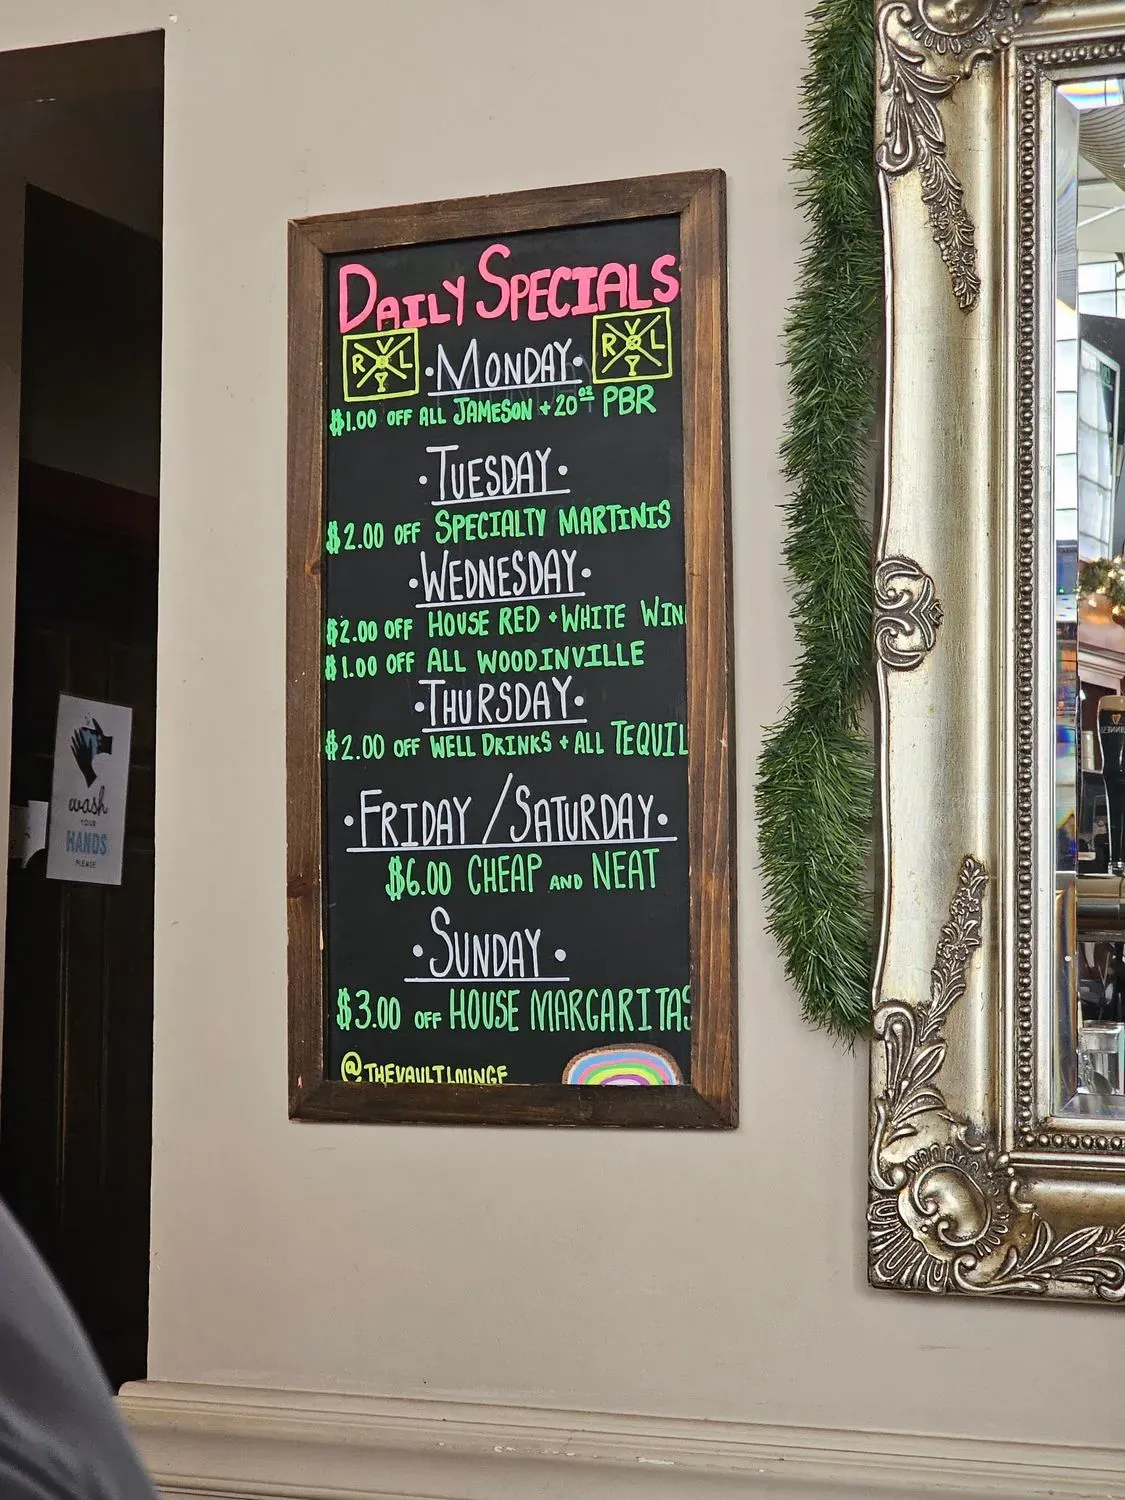 DAILY SPECIALS
R V L Y
·MONDAY·
R V L Y
$1.00 OFF ALL JAMESON + 20oz PBR
·TUESDAY·
$2.00 OFF SPECIALTY MARTINIS
·WEDNESDAY·
$2.00 OFF HOUSE RED + WHITE WIN
$1.00 OFF ALL WOODINVILLE
·THURSDAY·
$2.00 OFF WELL DRINKS + ALL TEQUIL
·FRIDAY/SATURDAY·
$6.00 CHEAP AND NEAT
·SUNDAY·
$3.00 OFF HOUSE MARGARITAS
@THEVAULTLOUNGE
wash
YOUR
HANDS
PLEASE
GUINNESS